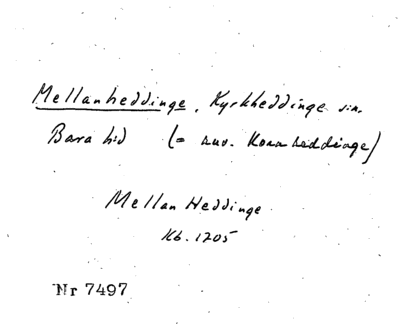 Mellanheddinge, Kyrkheddinge sn.
Bara hd (= nuv. Korneheddinge)
Mellan Heddinge
Kb. 1205
Nr 7497